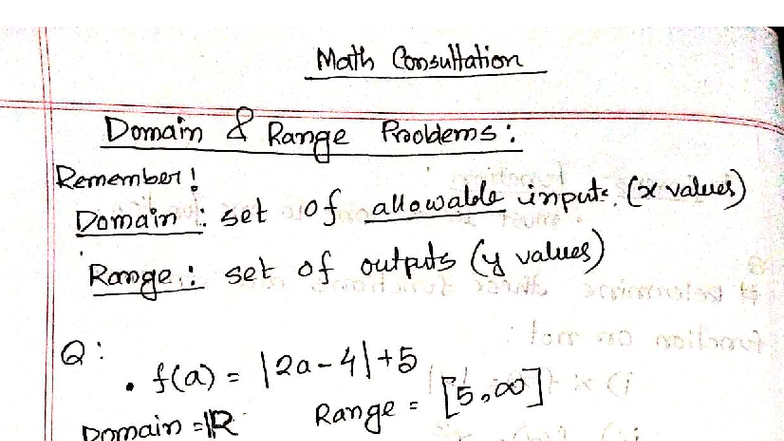 Math Consultation
Domain & Range Problems:
Remember!
Domain: set of allowable inputs. (x values)
Range: set of outputs (y values)
Q:
• f(a) = |2a-4|+5
Domain = ℝ Range = [5,∞]